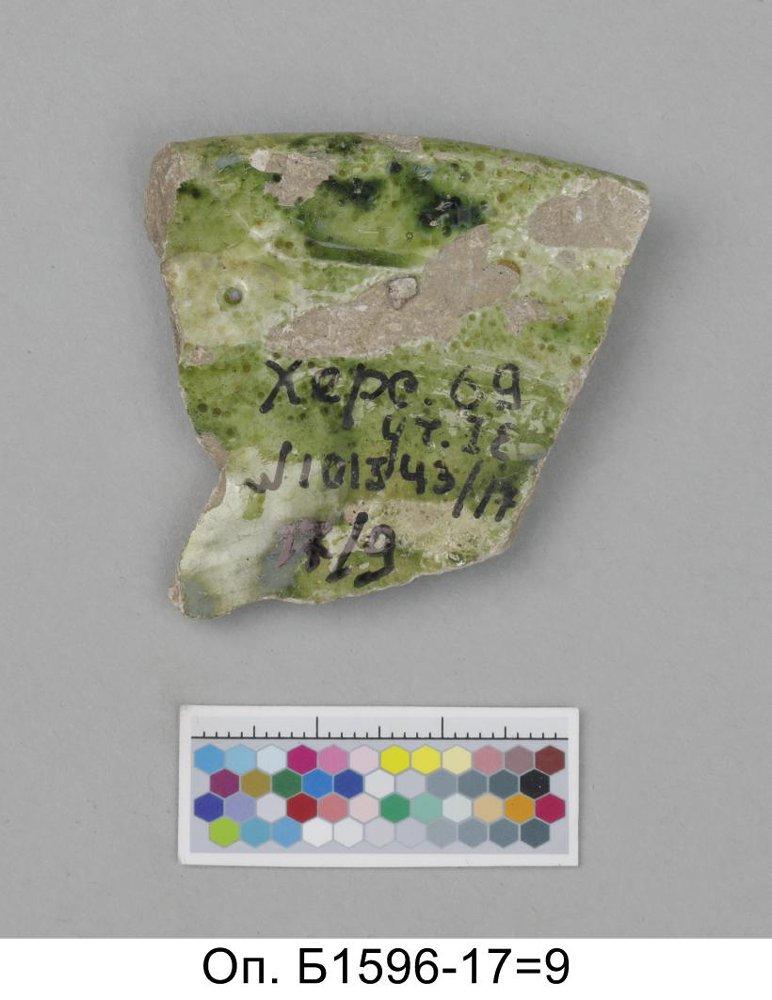 Херс. 69
уч. IE
N 101343/17
17/9
Оп. Б1596-17=9